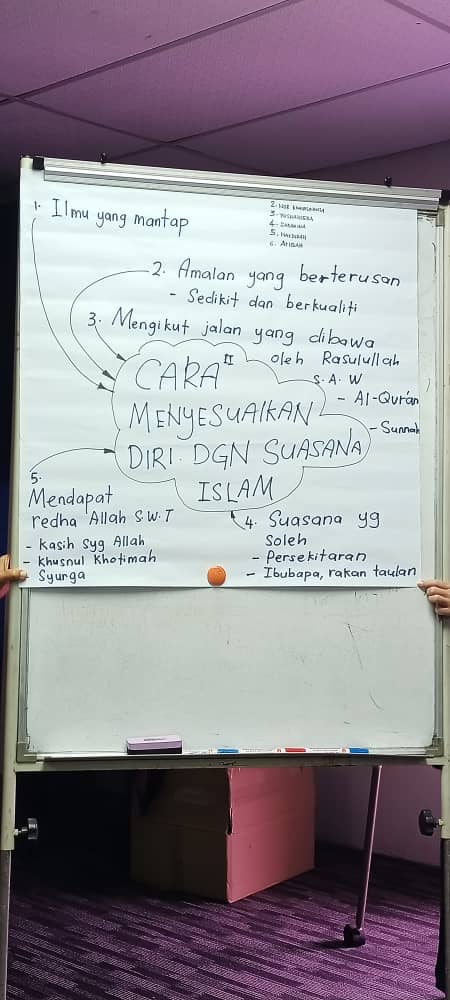 1. Ilmu yang mantap
5. MARDIAH
6. AFIQAH
2. Amalan yang berterusan
- Sedikit dan berkualiti
3. Mengikut jalan yang dibawa
oleh Rasulullah
S.A.W
- Al-Qur'an
- Sunnah
CARA II
MENYESUAIKAN
DIRI DGN SUASANA
ISLAM
5.
Mendapat
redha Allah S.W.T
- Kasih syg Allah
- Khusnul Khotimah
- Syurga
4. Suasana yg
Soleh
- Persekitaran
- Ibubapa, rakan taulan